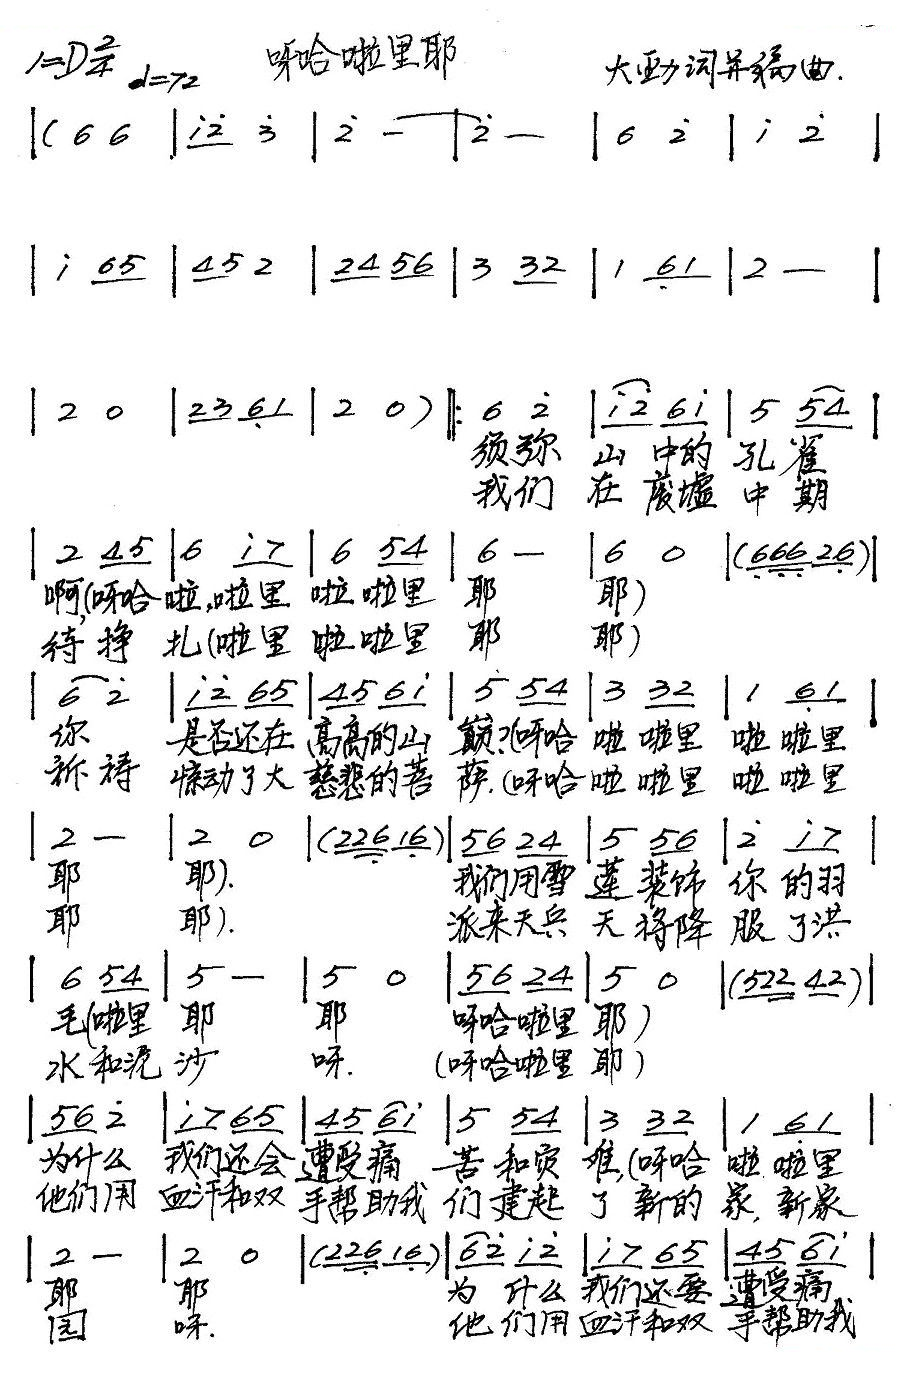 1=D 2/4 d=72 呀哈啦里耶 大勐词并编曲.
|( 6 6 | i̇2̇ 3̇ | 2̇ - | 2̇ - | 6 2̇ | i̇ 2̇ |
| i̇ 65 | 45 2 | 24 56 | 3 32 | 1 6̣1 | 2 - |
| 2 0 | 23 6̣1 | 2 0 ) ‖: 6 2̇ | i̇2̇ 6i̇ | 5 54 |
须弥 山 中的 孔 雀
我们 在 废墟 中 期
| 2 45 | 6 i̇7 | 6 54 | 6 - | 6 0 | (6̣6̣6̣ 26̣) |
啊,(呀哈 啦,啦里 啦 啦里 耶 耶)
待 挣 扎(啦里 啦 啦里 耶 耶)
| 6 2̇ | i̇2̇ 65 | 45 6i̇ | 5 54 | 3 32 | 1 6̣1 |
你 是否还在 高高的山 巅?(呀哈 啦 啦里 啦 啦里
祈 祷 惊动了大 慈悲的菩 萨.(呀哈 啦 啦里 啦 啦里
| 2 - | 2 0 | (226̣ 16̣) | 56 24 | 5 56 | 2̇ i̇7 |
耶 耶). 我们用雪 莲 装饰 你 的羽
耶 耶). 派来天兵 天 将降 服 了洪
| 6 54 | 5 - | 5 0 | 56 24 | 5 0 | (522 42) |
毛(啦里 耶 耶 呀哈啦里 耶)
水 和泥 沙 呀. (呀哈啦里 耶)
| 56 2̇ | i̇7 65 | 45 6i̇ | 5 54 | 3 32 | 1 6̣1 |
为什么 我们还会 遭受痛 苦 和灾 难,(呀哈 啦 啦里
他们用 血汗和双 手帮助我 们 建起 了 新的 家, 新家
| 2 - | 2 0 | (226̣ 16̣) | 62̇ i̇2̇ | i̇7 65 | 45 6i̇ |
耶 耶 为 什么 我们还要 遭受痛
园 呀. 他 们用 血汗和双 手帮助我